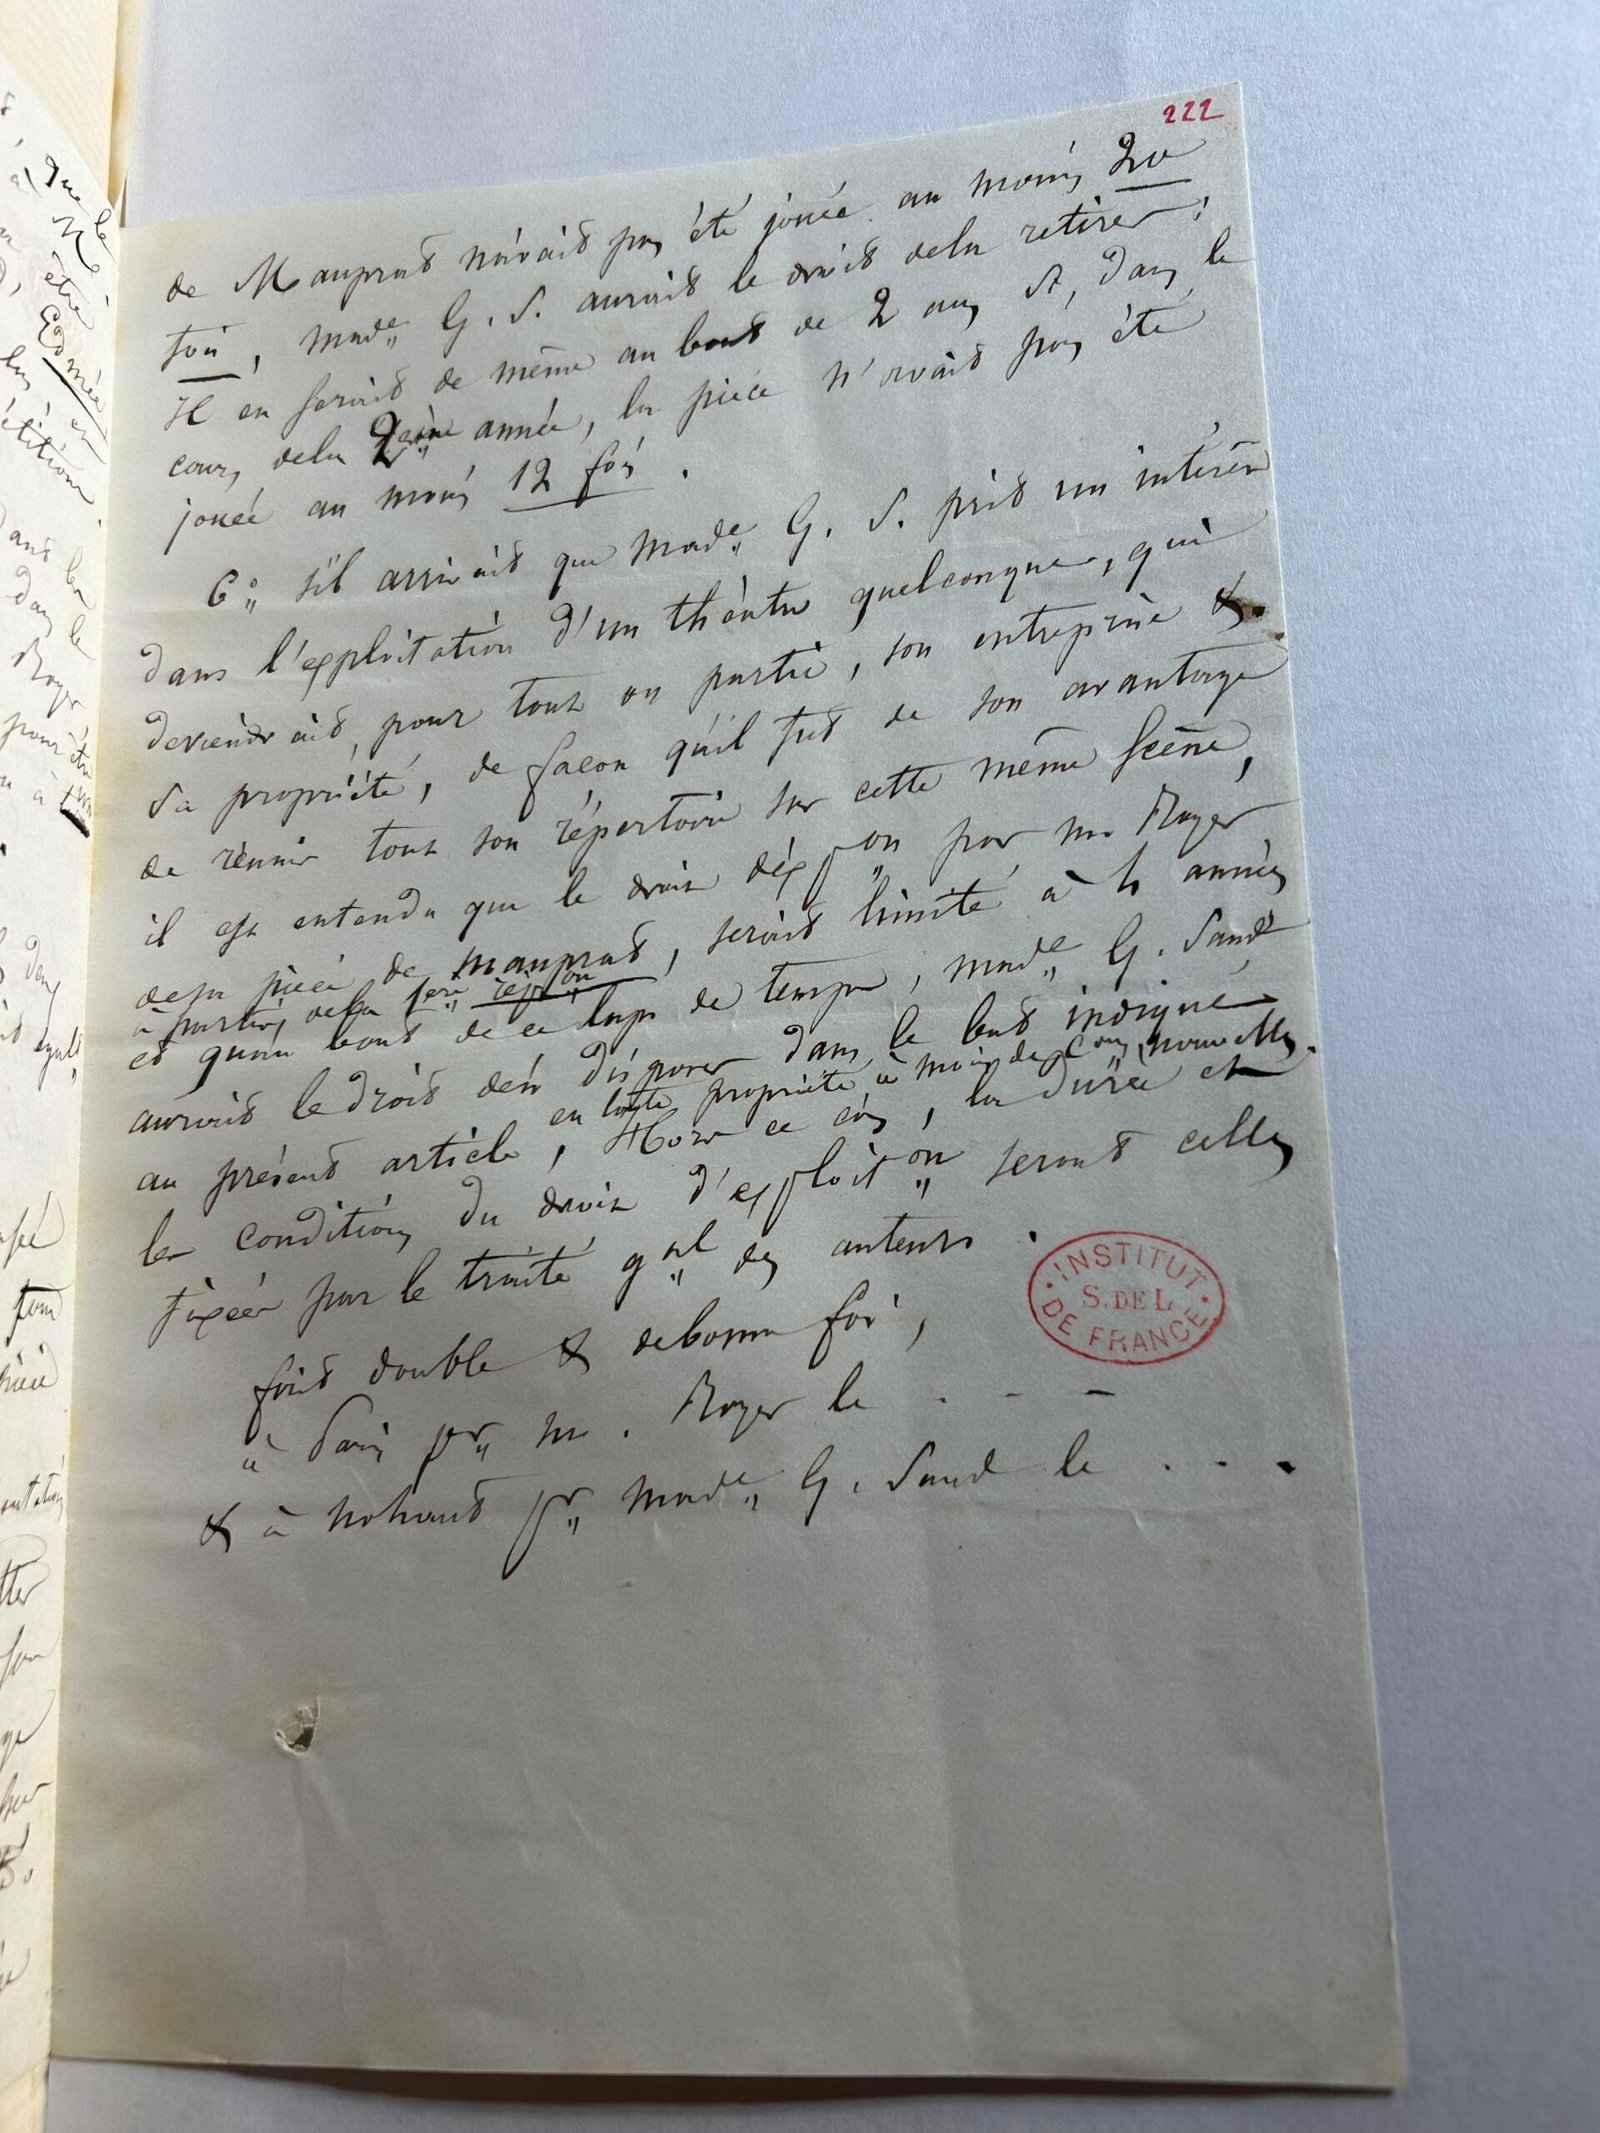 222
de Mauprat n'avait pas été jouée au moins 20
fois, made G. S. aurait le droit de la retirer;
Il en serait de même au bout de 2 ans si, dans le
cours de la 2eme année, la pièce n'avait pas été
jouée au moins 12 fois.
6° s'il arrivait que made G. S. prit un intérêt
dans l'exploitation d'un théâtre quelconque, qui
deviendrait, pour tout ou partie, son entreprise &
sa propriété, de façon qu'il fut de son avantage
de réunir tout son répertoire sur cette même scène,
il est entendu que le droit d'expon par mr Royer
de sa pièce de Mauprat, serait limité à 4 années
à partir de la 1ere réption
et qu'au bout de ce laps de temps, made G. Sand
aurait le droit d'en disposer dans le but indiqué
en toute propriété à moins de Cons nouvelles.
au présent article, Hors ce cas, la durée et
les conditions du droit d'exploiton seront celles
fixées par le traité gnal des auteurs.
fait double & de bonne foi,
à Paris pr m. Royer le . - -
& à nohant pr made G. Sand le . . .
INSTITUT
S. DE L
DE FRANCE
que le
M.
être
Edmée
en
dans le
Royer
pour être